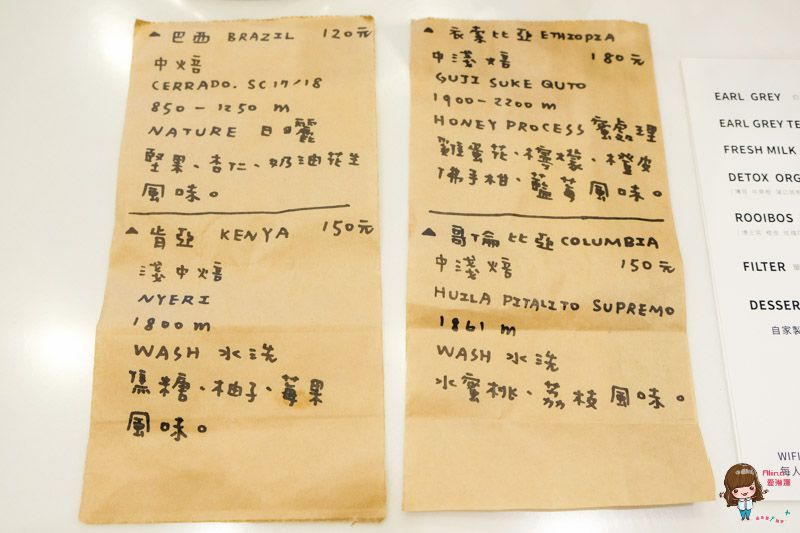 ▲ 巴西 BRAZIL 120元
中焙
CERRADO. SC 17/18
850 - 1250 m
NATURE 日曬
堅果、杏仁、奶油花生
風味。
▲ 肯亞 KENYA 150元
淺中焙
NYERI
1800 m
WASH 水洗
焦糖、柚子、莓果
風味。
▲ 衣索比亞 ETHIOPIA
中淺焙 180元
GUJI SUKE QUTO
1900 - 2200 m
HONEY PROCESS 蜜處理
雞蛋花、檸檬、橙皮
佛手柑、藍莓風味。
▲ 哥倫比亞 COLUMBIA
中淺焙 150元
HUILA PITALITO SUPREMO
1861 m
WASH 水洗
水蜜桃、荔枝風味。
EARL GREY
EARL GREY TE
FRESH MILK
DETOX ORG
ROOIBOS
FILTER
DESSER
自家製
WIFI
每人
愛琳娜